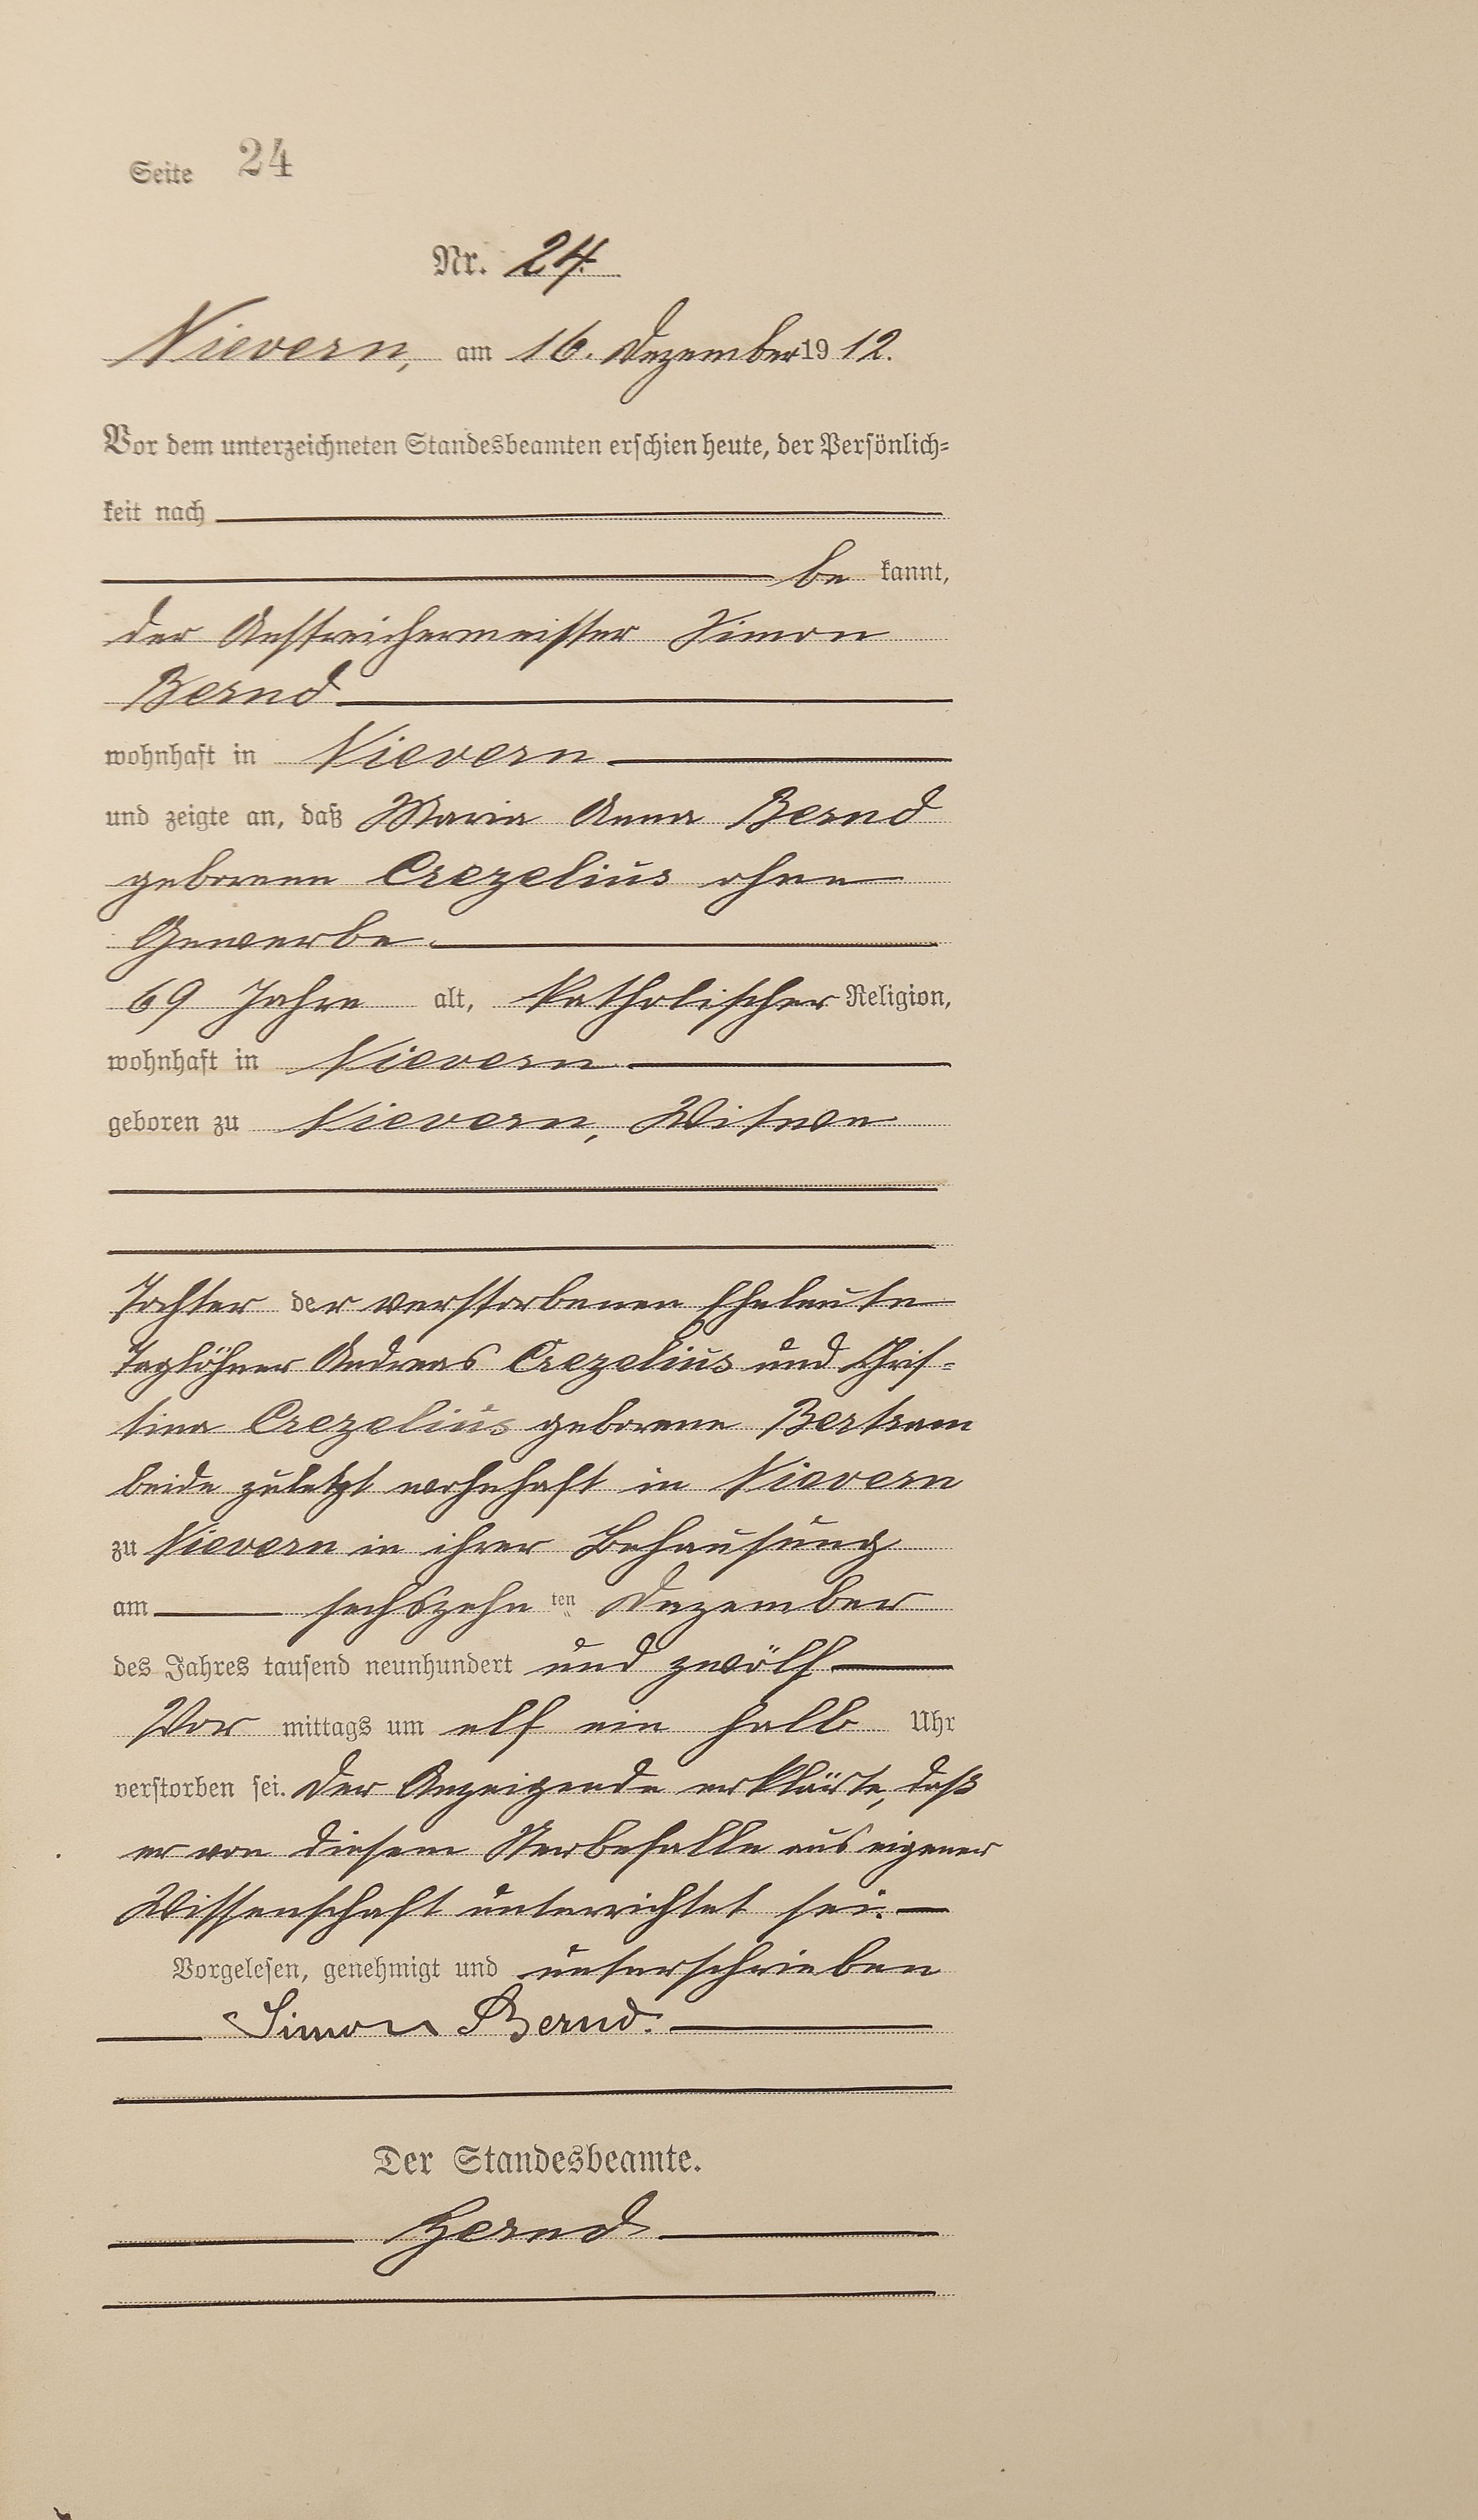 Seite 24
Nr. 24.
Nievern, am 16. Dezember 1912.
Vor dem unterzeichneten Standesbeamten erschien heute, der Persönlich-
keit nach
be kannt,
der Anstreichermeister Simon
Bernd
wohnhaft in Nievern
und zeigte an, daß Maria Anna Bernd
geborene Crezelius ohne
Gewerbe.
69 Jahre alt, katholischer Religion,
wohnhaft in Nievern
geboren zu Nievern, Witwe
Tochter der verstorbenen Eheleute
Taglöhner Andreas Crezelius und Chris-
tina Crezelius geborene Bertram
beide zuletzt wohnhaft in Nievern
zu Nievern in ihrer Behausung
am sechszehn ten Dezember
des Jahres tausend neunhundert und zwölf
Vor mittags um elf ein halb Uhr
verstorben sei. Der Anzeigende erklärte, daß
er von diesem Sterbefalle aus eigener
Wissenschaft unterrichtet sei.
Vorgelesen, genehmigt und unterschrieben
Simon Bernd.
Der Standesbeamte.